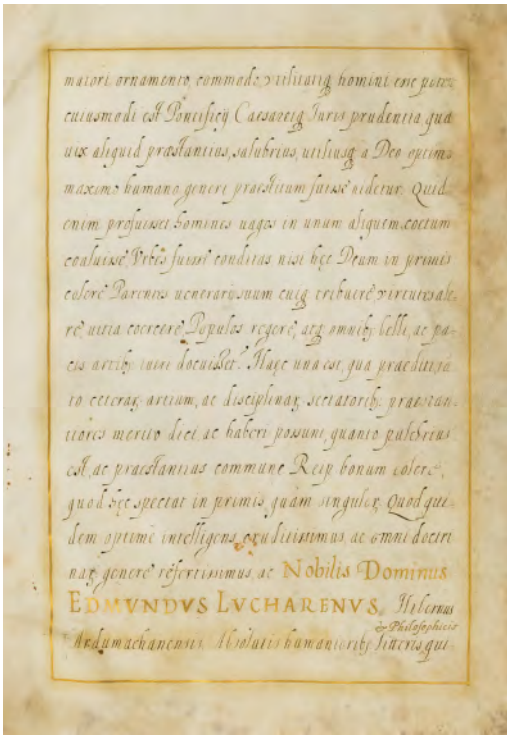 maiori ornamento, commodo, utilitatiq; homini esse potest
cuiusmodi est Pontificij Caesareiq; Iuris prudentia, qua
uix aliquid praestantius, salubrius, utiliusq; a Deo optimo
maximo humano generi praestitum fuisse uidetur. Quid
enim profuisset homines uagos in unum aliquem coetum
coaluisse, Vrbes fuisse conditas nisi hęc Deum in primis
colere, Parentes uenerari, suum cuiq; tribuere, uirtutes ale-
re, uitia coercere, Populos regere, atq; omnib; belli, ac pa-
cis artib; docuisset? Haec una est, qua praediti
to ceterar; artium, ac disciplinar; sectatorib; praestan-
tiores merito dici, ac haberi possunt, quanto pulchrius
est, ac praestantius commune Reip bonum colere,
quod hęc spectat in primis, quam singuler; Quod qui-
dem optime intelligens, eruditissimus, ac omni doctri
nar; genere refertissimus, ac Nobilis Dominus
EDMVNDVS LVCHARENVS, Hibernus
& Philosophicis
Ardumachanensis Absolutis humaniorib; litteris, qui-